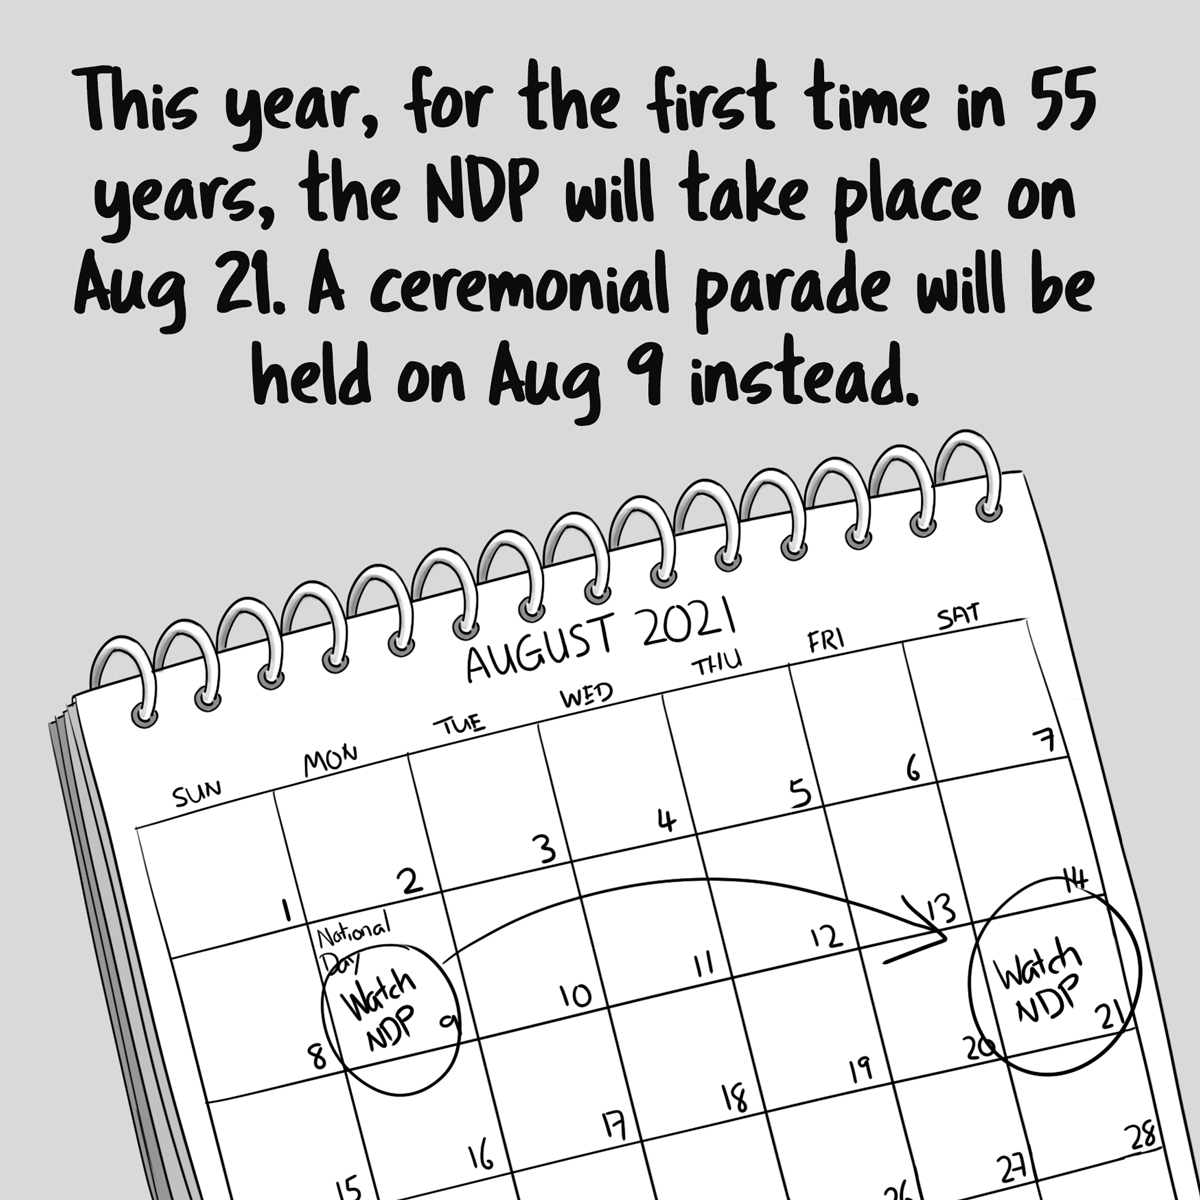 This year, for the first time in 55
years, the NDP will take place on
Aug 21. A ceremonial parade will be
held on Aug 9 instead.
AUGUST 2021
SUN MON TUE WED THU FRI SAT
1 2 3 4 5 6 7
National
Day
Watch
NDP
8 9 10 11 12 13 14
Watch
NDP
15 16 17 18 19 20 21
26 27 28